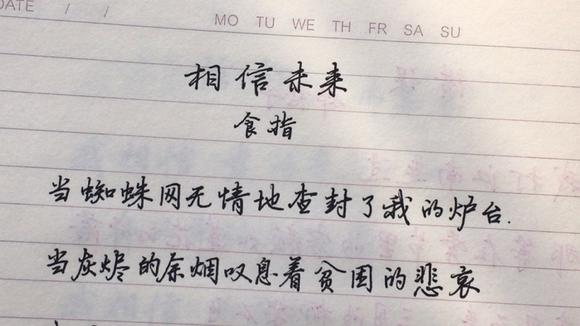 DATE / /
MO TU WE TH FR SA SU
相信未来
食指
当蜘蛛网无情地查封了我的炉台.
当灰烬的余烟叹息着贫困的悲哀